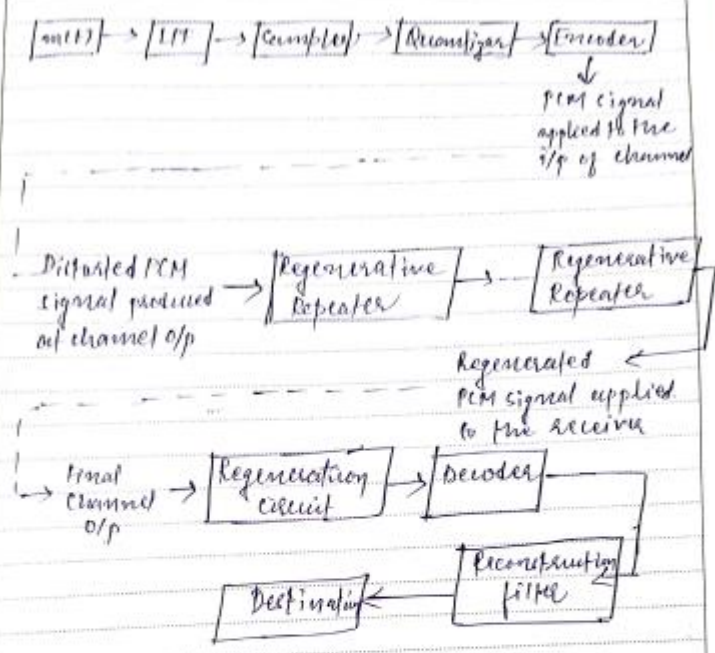 m(t) → LPF → Sampler → Quantizer → Encoder
PCM signal
applied to the
i/p of channel
Distorted PCM
signal produced
at channel o/p
Regenerative
Repeater
Regenerative
Repeater
Regenerated
PCM signal applied
to the receiver
Final
Channel
O/p
Regeneration
circuit
Decoder
Reconstruction
filter
Destination